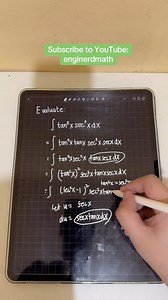 Subscribe to YouTube:
enginerdmath
Evaluate:
∫ tan⁵x sec³x dx
= ∫ tan⁴x tanx sec²x secx dx
= ∫ tan⁴x sec²x tanx secx dx
= ∫ (tan²x)² sec²x tanx secx dx
= ∫ (sec²x - 1)² sec²x tanx
Let u = secx
du = secx tanx dx